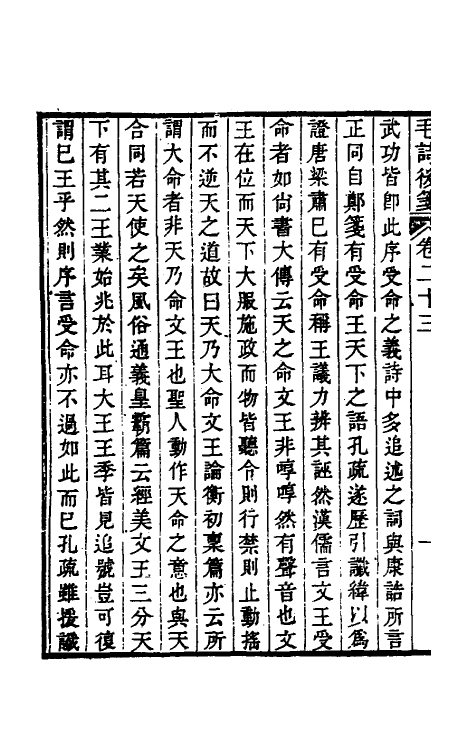 毛詩後箋 卷二十三 一
武功皆卽此序受命之義詩中多追述之詞與康誥所言
正同自鄭箋有受命王天下之語孔疏遂歷引讖緯以爲
證唐梁肅已有受命稱王議力辨其誣然漢儒言文王受
命者如尙書大傳云天之命文王非啍啍然有聲音也文
王在位而天下大服施政而物皆聽令則行禁則止動搖
而不逆天之道故曰天乃大命文王論衡初稟篇亦云所
謂大命者非天乃命文王也聖人動作天命之意也與天
合同若天使之矣風俗通義皇霸篇云經美文王三分天
下有其二王業始兆於此耳大王王季皆見追號豈可復
謂已王乎然則序言受命亦不過如此而已孔疏雖援讖